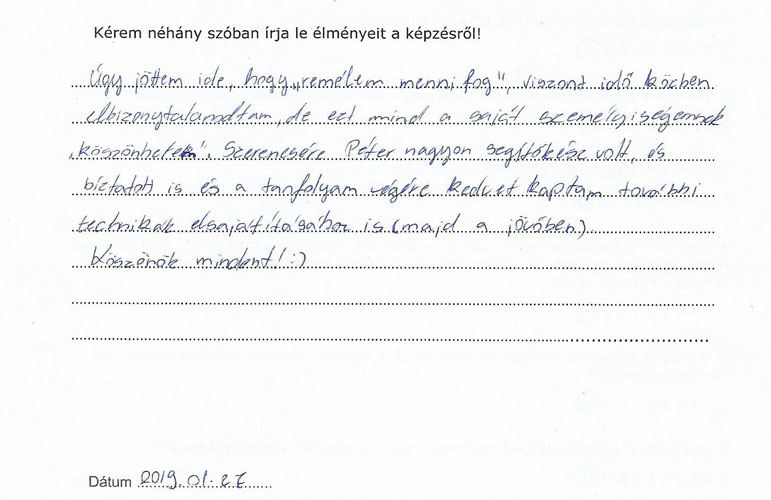 Kérem néhány szóban írja le élményeit a képzésről!
Úgy jöttem ide, hogy „remélem menni fog", viszont idő közben
elbizonytalanodtam, de ezt mind a saját személyiségemnek
„köszönhetem". Szerencsére Péter nagyon segítőkész volt, és
bíztatott is és a tanfolyam végére kedvet kaptam további
technikák elsajátításához is (majd a jövőben)
Köszönök mindent! :)
Dátum 2019. 01. 27